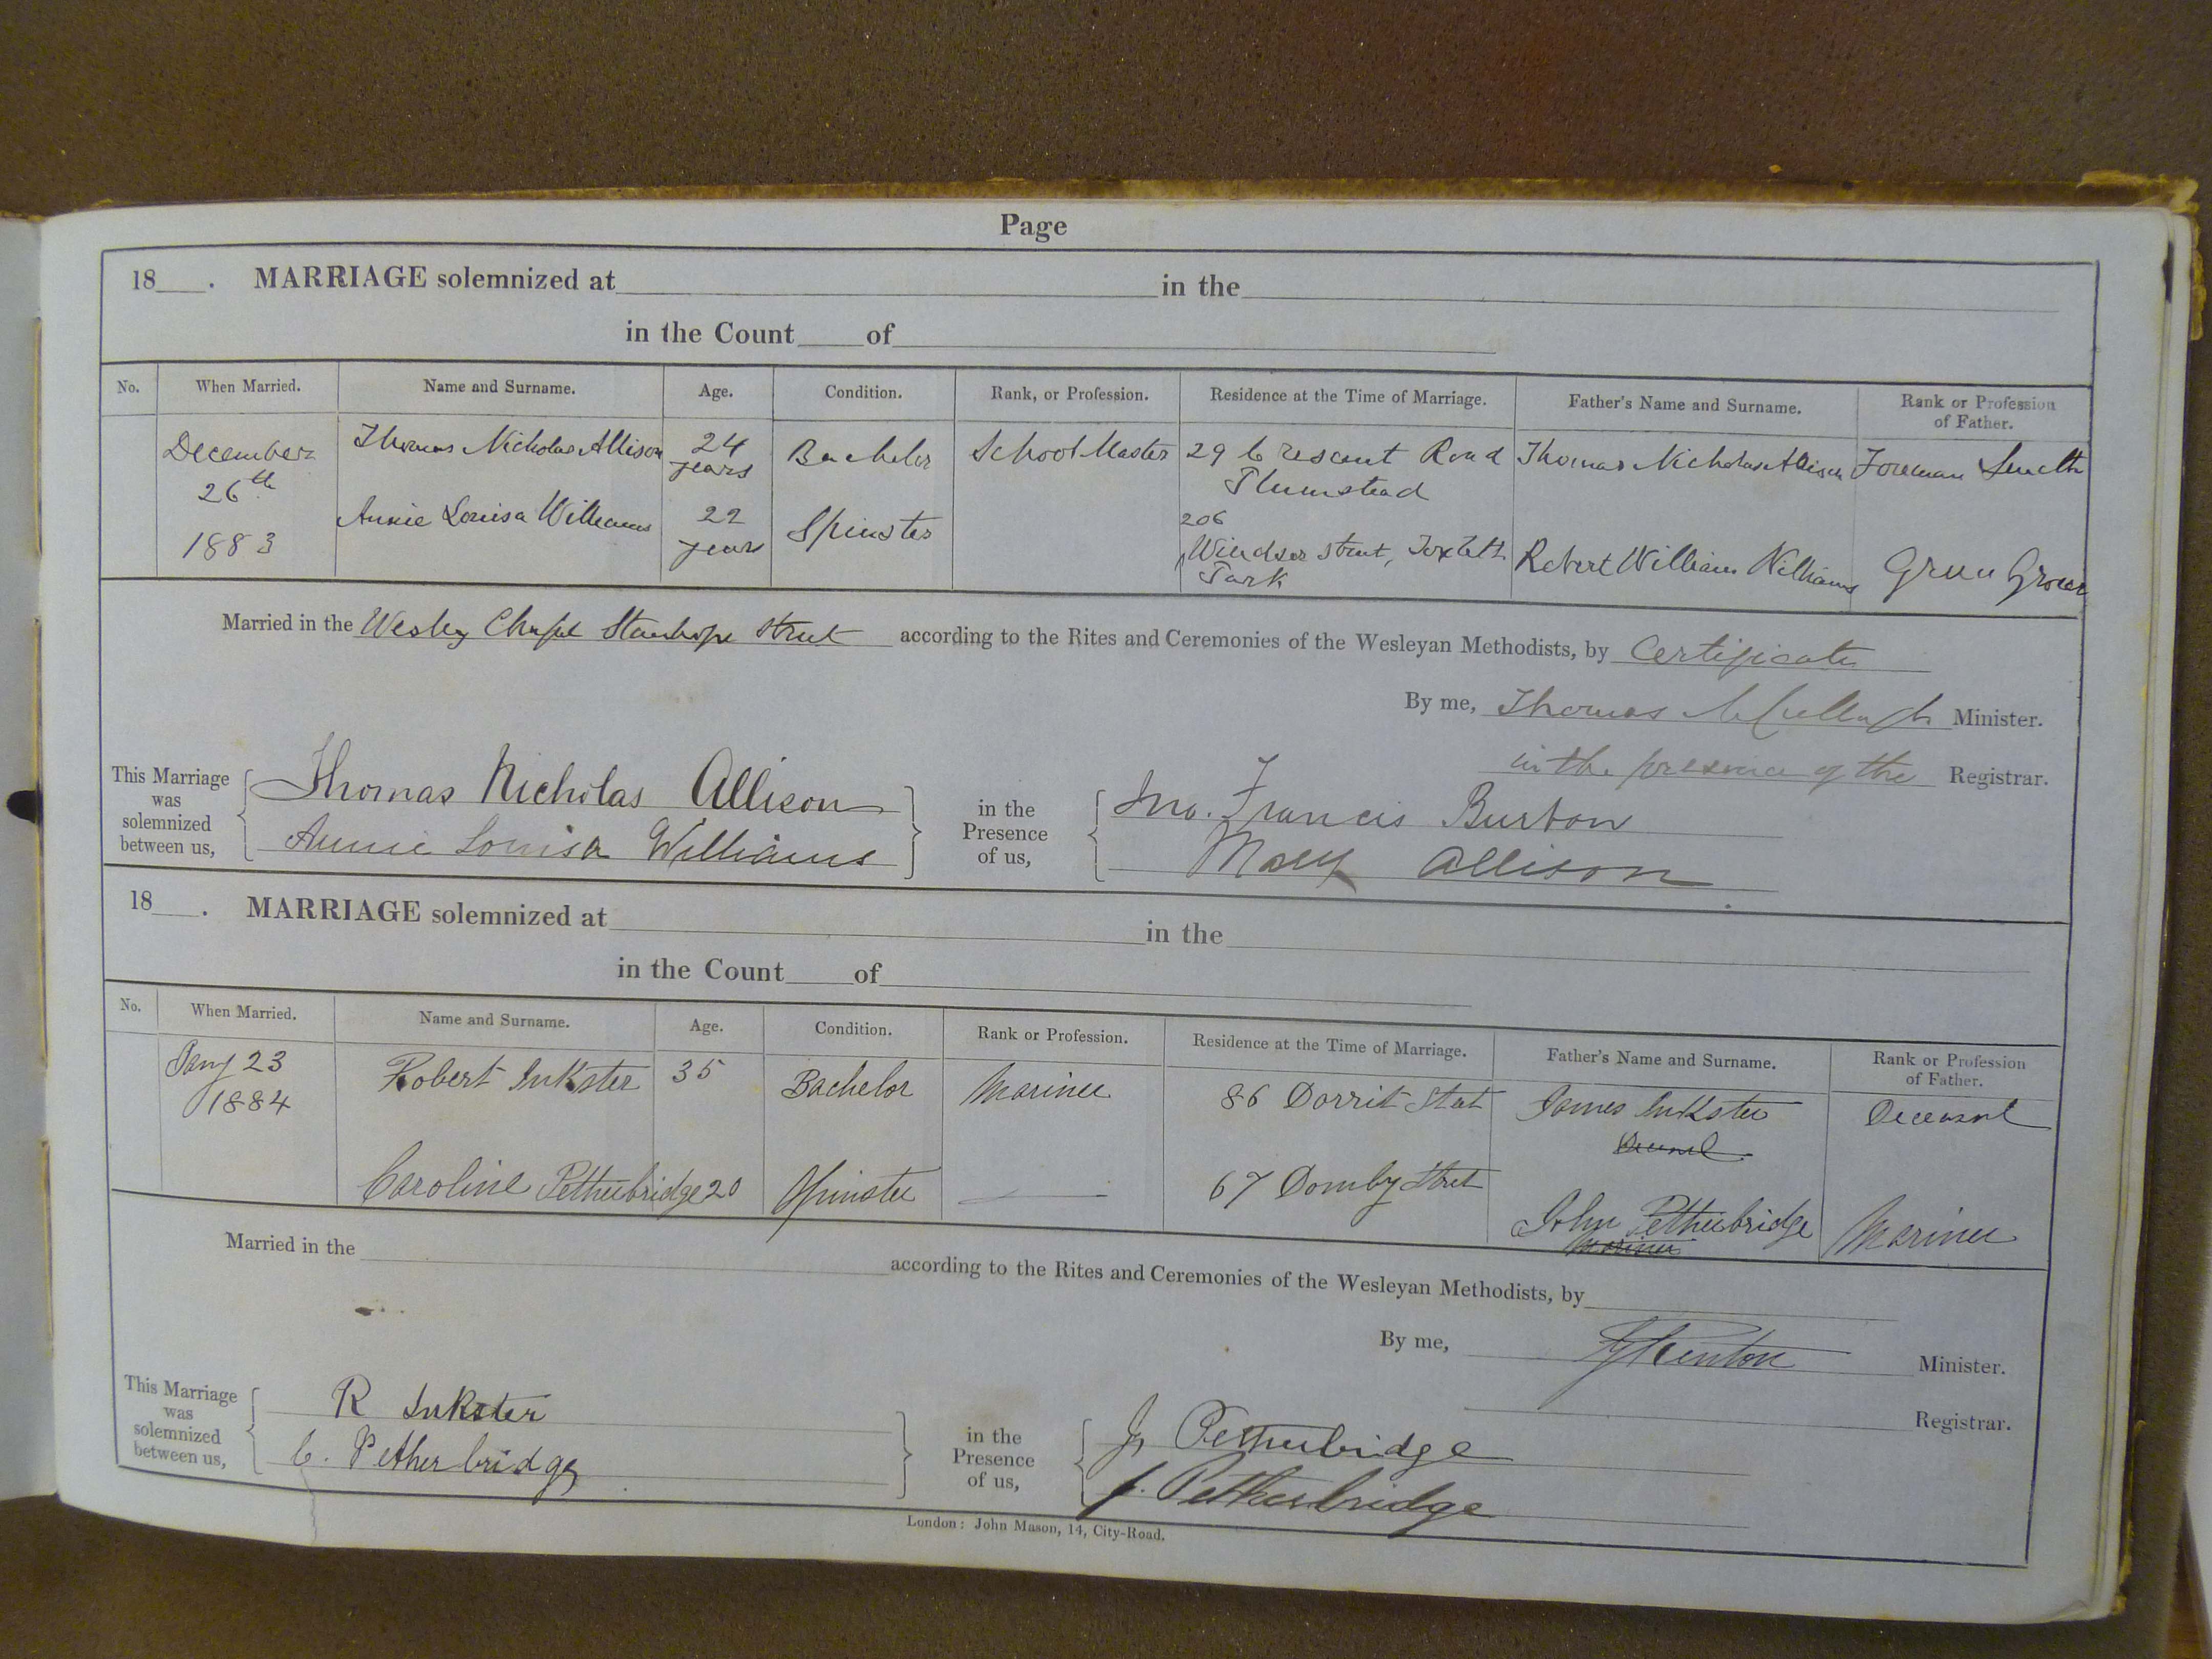 Page
18 . MARRIAGE solemnized at in the
in the Count of
No. When Married. Name and Surname. Age. Condition. Rank, or Profession. Residence at the Time of Marriage. Father's Name and Surname. Rank or Profession of Father.
December 26th 1883 Thomas Nicholas Allison 24 years Bachelor School Master 29 Crescent Road Plumstead Thomas Nicholas Allison Foreman Smith
Annie Louisa Williams 22 years Spinster 206 Windsor Street, Toxteth Park Robert William Williams Green Grocer
Married in the Wesley Chapel Stanhope Street according to the Rites and Ceremonies of the Wesleyan Methodists, by Certificate
By me, Thomas McCullagh Minister.
in the presence of the Registrar.
This Marriage was solemnized between us, Thomas Nicholas Allison in the Presence of us, Jno. Francis Burton
Annie Louisa Williams Mary Allison
18 . MARRIAGE solemnized at in the
in the Count of
No. When Married. Name and Surname. Age. Condition. Rank or Profession. Residence at the Time of Marriage. Father's Name and Surname. Rank or Profession of Father.
Jany 23 1884 Robert Inkster 35 Bachelor Mariner 86 Dorrit Street James Inkster Deceased
Caroline Petherbridge 20 Spinster 67 Domby Street John Petherbridge Mariner
Mariner
Married in the according to the Rites and Ceremonies of the Wesleyan Methodists, by
By me, Minister.
Registrar.
This Marriage was solemnized between us, R Inkster in the Presence of us, J Petherbridge
C. Petherbridge J. Petherbridge
London: John Mason, 14, City-Road.